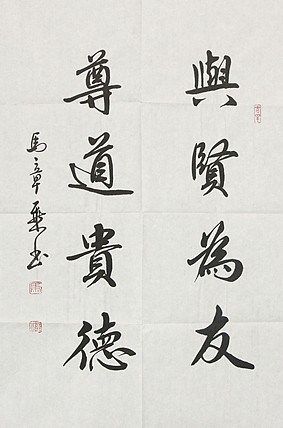 與賢為友
尊道貴德
馬章乘书